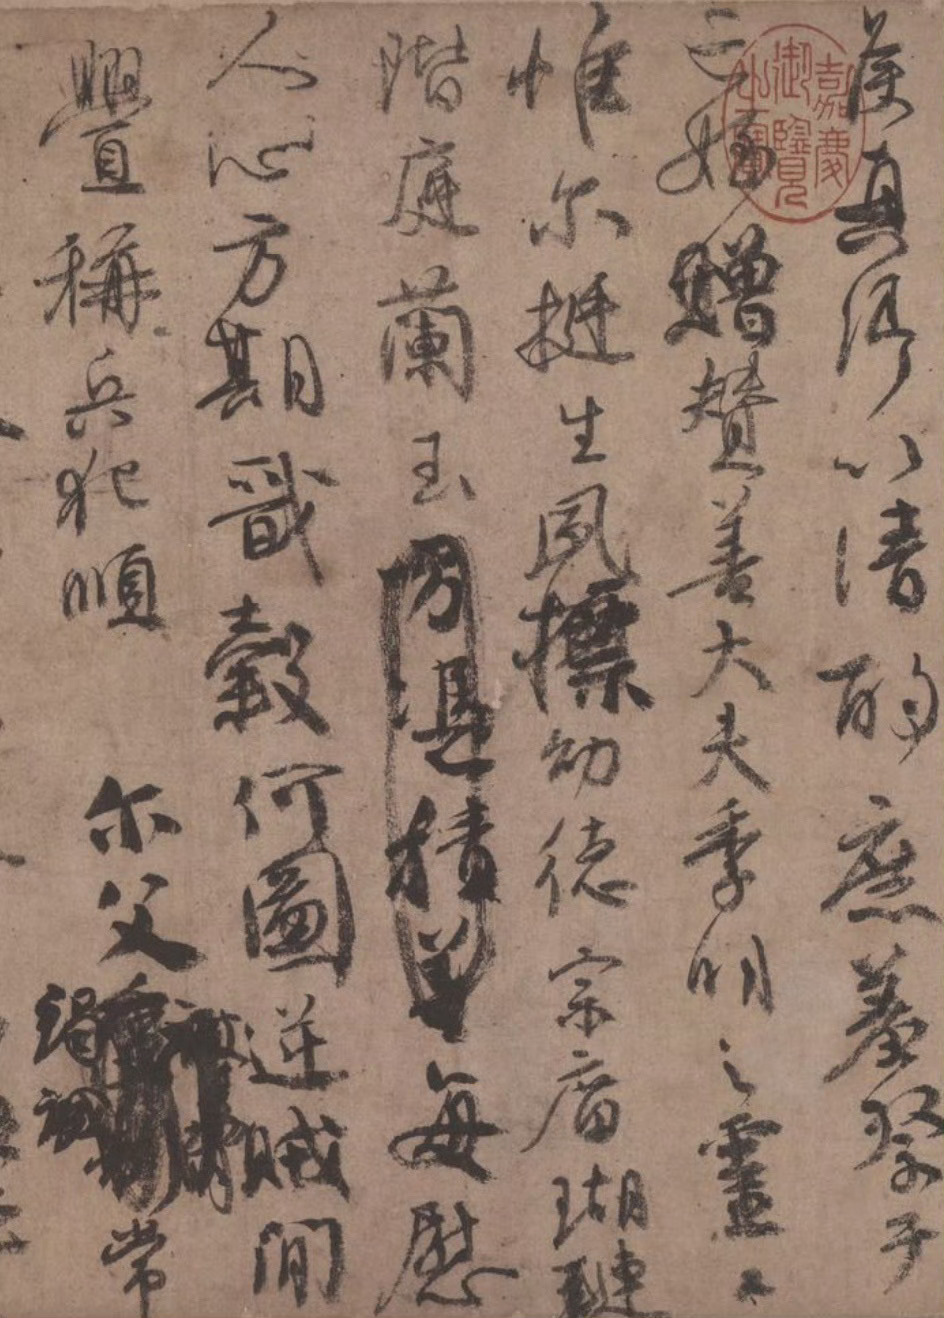 侯真卿以清酌庶羞祭于
亡姪贈贊善大夫季明之靈曰
惟尔挺生夙標幼德宗廟瑚璉
階庭蘭玉方憑積善每慰
人心方期戩穀何圖逆賊間
舋稱兵犯順 尔父竭誠常
嘉慶御覽之寶